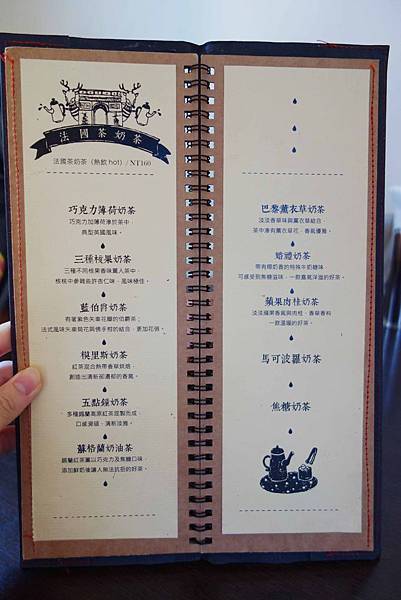 法國茶奶茶
法國茶奶茶（熱飲 hot）/ NT160
巧克力薄荷奶茶
巧克力加薄荷漫於茶中，
典型英國風味。
三種核果奶茶
三種不同核果香味薰入茶中，
核桃中參雜些許杏仁味，風味極佳。
藍伯爵奶茶
有駕紫色矢車花瓣的伯爵茶；
法式風味矢車菊花與佛手柑的結合，更加花俏。
模里斯奶茶
紅茶混合熱帶香草烘焙，
創造出清新卻濃郁的香氣。
五點鐘奶茶
多種錫蘭高原紅茶混製而成，
口感滑順、清新淡雅。
蘇格蘭奶油茶
錫蘭紅茶薰以巧克力及焦糖口味，
添加鮮奶後讓人無法抗拒的好茶。
巴黎薰衣草奶茶
淡淡香草味與薰衣草結合，
茶中漫有薰衣草花，香氣優雅。
婚禮奶茶
帶有糖奶香的特殊牛奶糖味，
可感受到焦糖滋味，一款喜氣洋溢的好茶。
蘋果肉桂奶茶
淡淡蘋果香氣與肉桂、香草香料
一款溫暖的好茶。
馬可波羅奶茶
焦糖奶茶